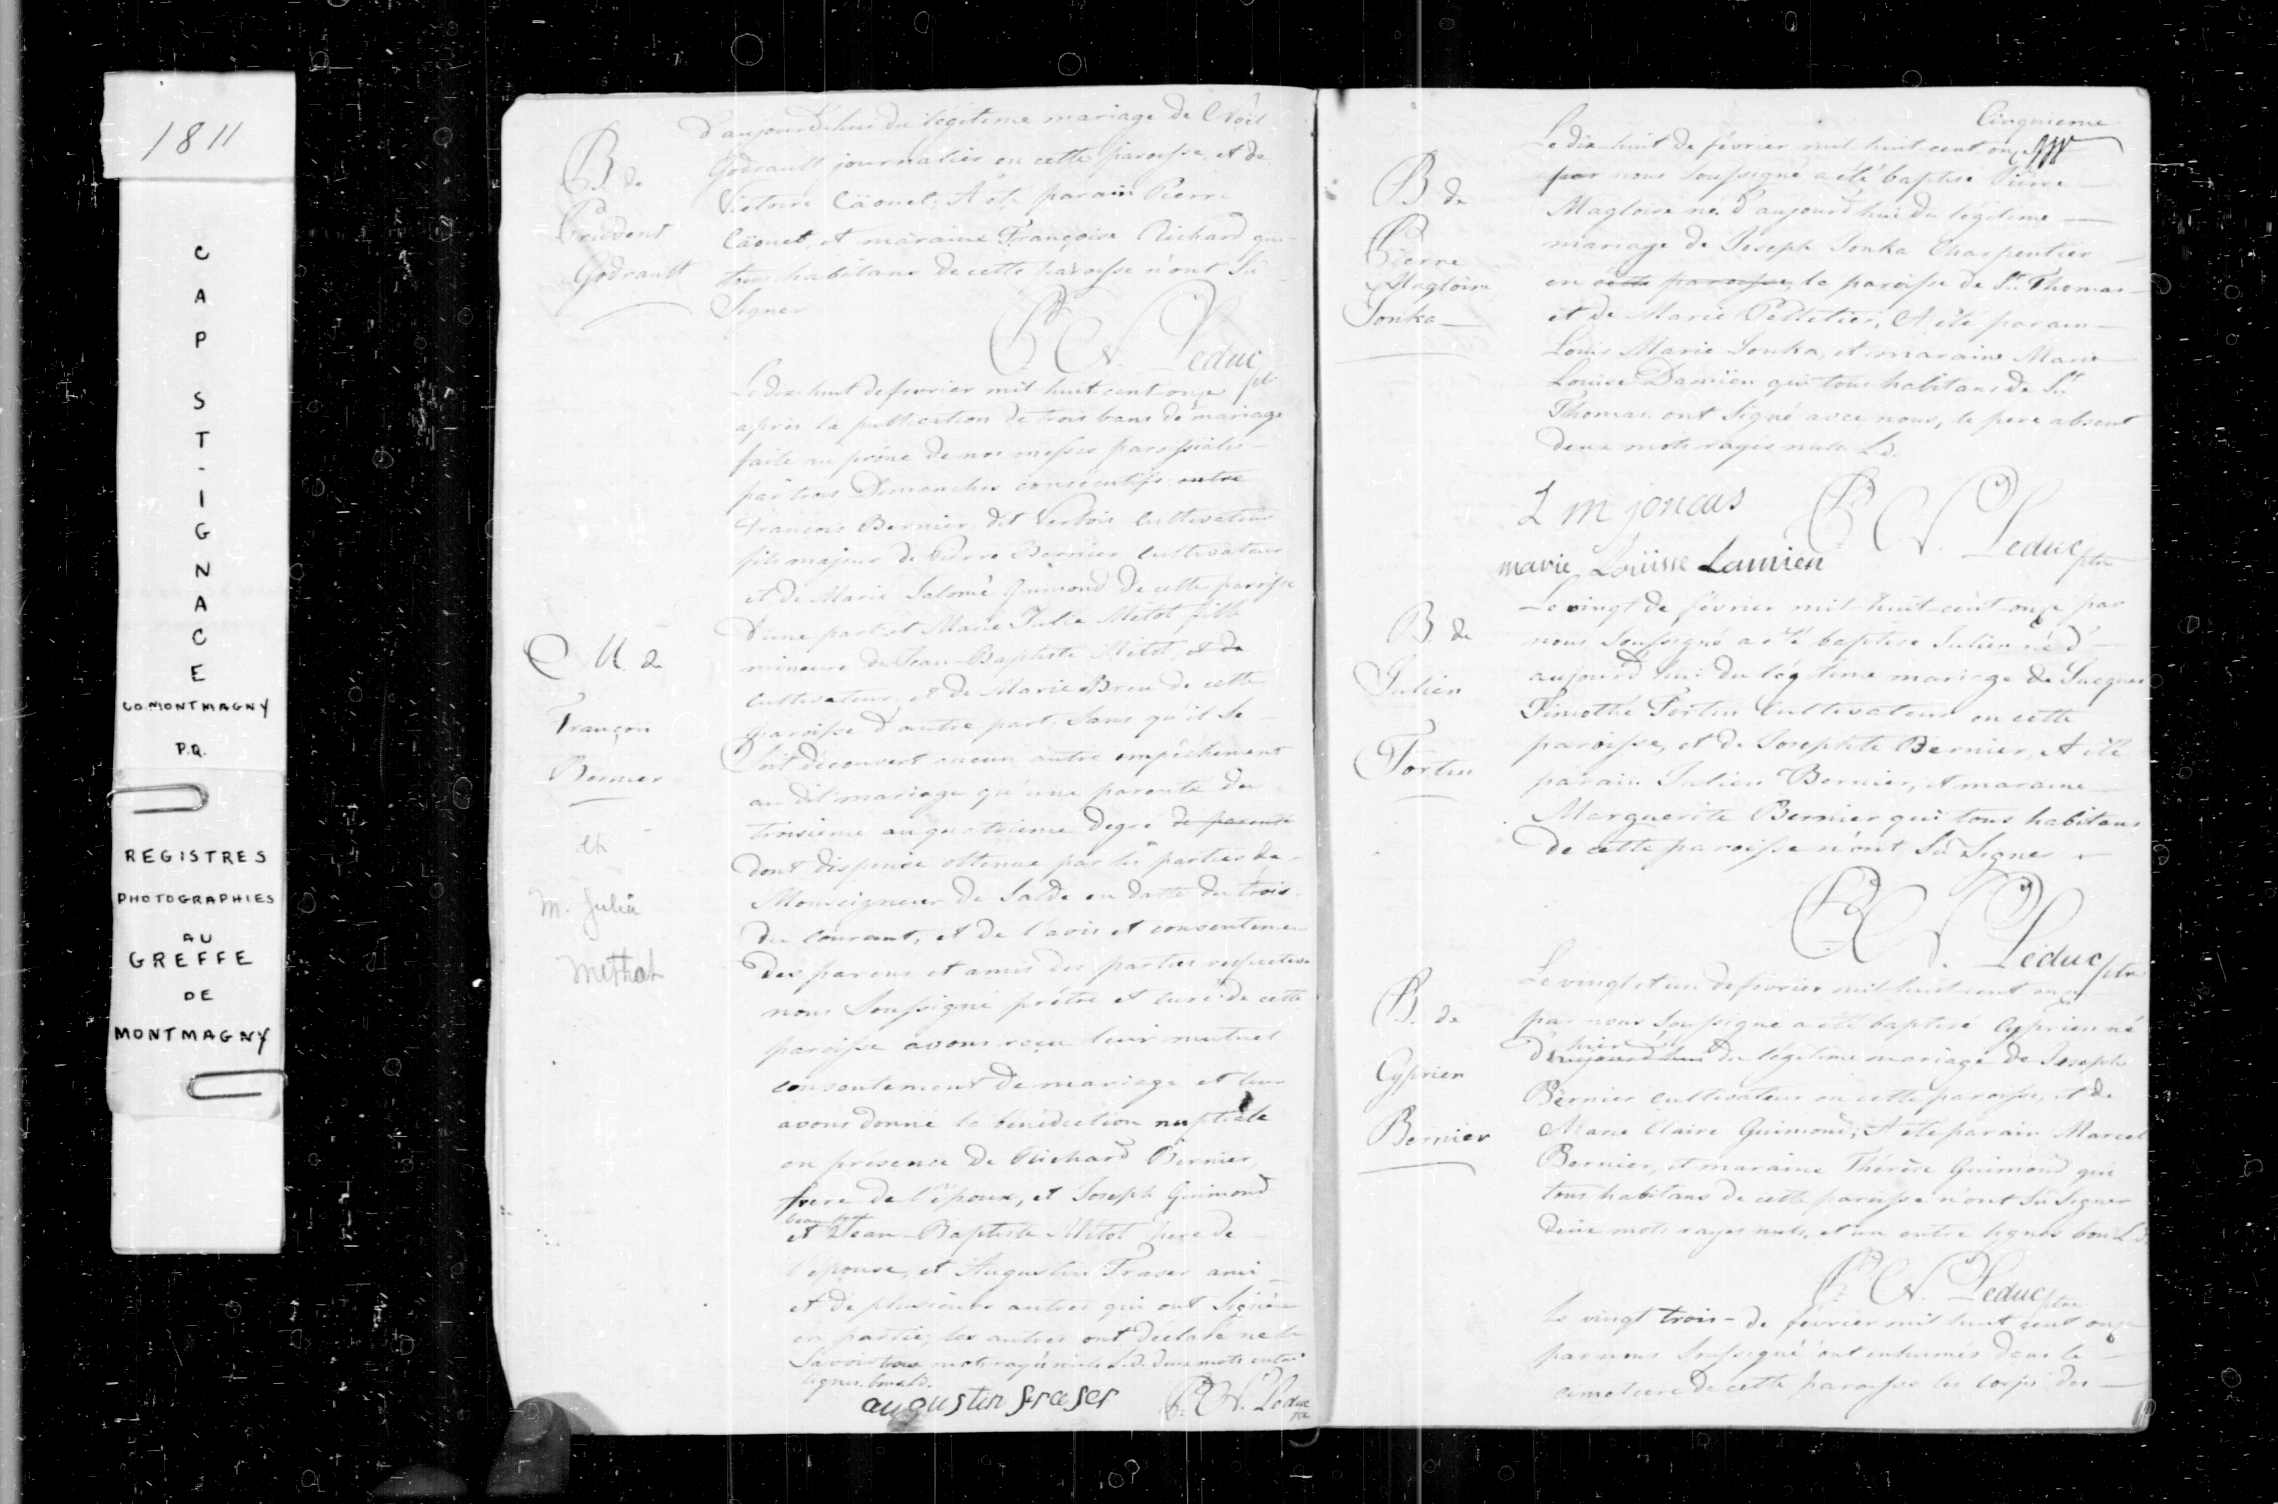 1811
CAP ST-IGNACE
CO. MONTMAGNY
P.Q.
REGISTRES
PHOTOGRAPHIES
AU
GREFFE
DE
MONTMAGNY
B. de
Prudent
Godrault
d'aujourd'hui du légitime mariage de Noël
Godrault journalier en cette paroisse, et de
Victoire Cäouet. A été parain Pierre
Cäouet, et maraine Françoise Richard qui
tous habitans de cette paroisse n'ont Su
Signer
Leduc ptr
M. de
François
Bernier
et
M. Julie
Methot
Le dix-huit de fevrier mil huit cent onze
après la publication de trois bans de mariage
faite au prône de nos messes paroissiales
par trois Dimanches consécutifs entre
François Bernier dit Verbois Cultivateur
fils majeur de Pierre Bernier Cultivateur
et de Marie Salomé Guimond de cette paroisse
d'une part et Marie Julie Metot fille
mineure de Jean-Baptiste Metot, et de
Cultivateur, et de Marie Breu de cette
paroisse d'autre part. Sans qu'il Se
Soit découvert aucun autre empêchement
au dit mariage qu'une parenté du
troisieme au quatrieme degré de parenté
dont dispense obtenue par les parties de
Monseigneur de Salde en datte du trois
du Courant, et de l'avis et consentement
des parens et amis des parties respectives
nous Soussigné prêtre et curé de cette
paroisse avons reçu leur mutuel
consentement de mariage et leur
avons donné la bénédiction nuptiale
en présence de Richard Bernier,
frere de l'époux, et Joseph Guimond
beau frere
et Jean-Baptiste Metot pere de
l'epouse, et Augustin Fraser ami
et de plusieurs autres qui ont Signé
en partie, les autres ont déclaré ne le
Savoir mots rayés nuls L.D. deux mots entre
lignes bons L.D.
augustin fraser Leduc ptr
Cinquieme
B de
Pierre
Magloire
Jonka
Le dix-huit de février mil huit cent onze
par nous Soussigné a été baptisé Pierre
Magloire né d'aujourd'hui du légitime
mariage de Joseph Jonka Charpentier
en cette paroisse, la paroisse de St. Thomas
et de Marie Pelletier, A été parain
Louis Marie Jonka, et maraine Marie
Louise Damien qui tous habitans de St.
Thomas ont Signé avec nous, le pere absent
deux mots rayés nuls L.D.
L m joncas
Leduc ptr
marie Louisse Lamien
B de
Julien
Fortin
Le vingt de février mil-huit-cent-onze par
nous Soussigné a été baptisé Julien né d'
aujourd'hui du légitime mariage de Jacques
Timothé Fortin Cultivateur en cette
paroisse, et de Josephte Bernier, A été
parain Julien Bernier, et maraine
Marguerite Bernier qui tous habitans
de cette paroisse n'ont Sû Signer
Leduc ptr
B. de
Cyprien
Bernier
Le vingt et un de fevrier mil huit cent onze
par nous Soussigné a été baptisé Cyprien né
hier
d'aujourd'hui du légitime mariage de Joseph
Bernier Cultivateur en cette paroisse, et de
Marie Claire Guimond, A été parain Marcel
Bernier, et maraine Thérèse Guimond qui
tous habitans de cette paroisse n'ont Su Signer
deux mots rayés nuls, et un entre lignes bon L.D.
Leduc ptr
Le vingt trois de fevrier mil huit cent onze
par nous Soussigné ont inhumés dans le
cimetiere de cette paroisse les corps des